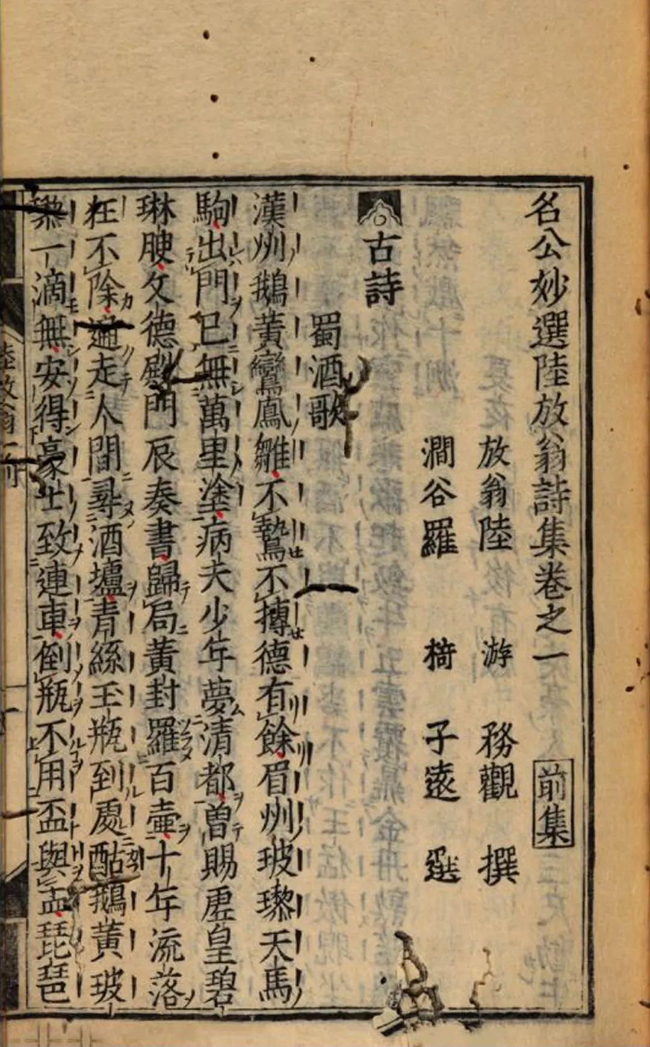 名公妙選陸放翁詩集卷之一 前集
放翁陸 游 務觀 撰
澗谷羅 椅 子遠 選
古詩
蜀酒歌
漢州鵝黃鸞鳳雛不鷙不搏德有餘眉州玻瓈天馬
駒出門已無萬里塗病夫少年夢清都曽賜虛皇碧
琳腴文德殿門辰奏書歸局黃封羅百壷十年流落
狂不除遍走人間尋酒壚青絲玉瓶到處酤鵝黃玻
瓈一滴無安得豪士致連車倒瓶不用盃與盂琵琶